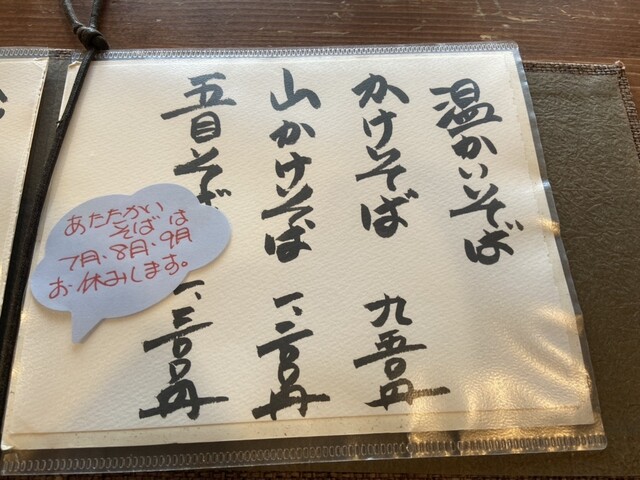 温かいそば
かけそば 九五〇円
山かけそば 一、二〇〇円
五目そば 一、三〇〇円
あたたかい
そばは
7月・8月・9月
お休みします。